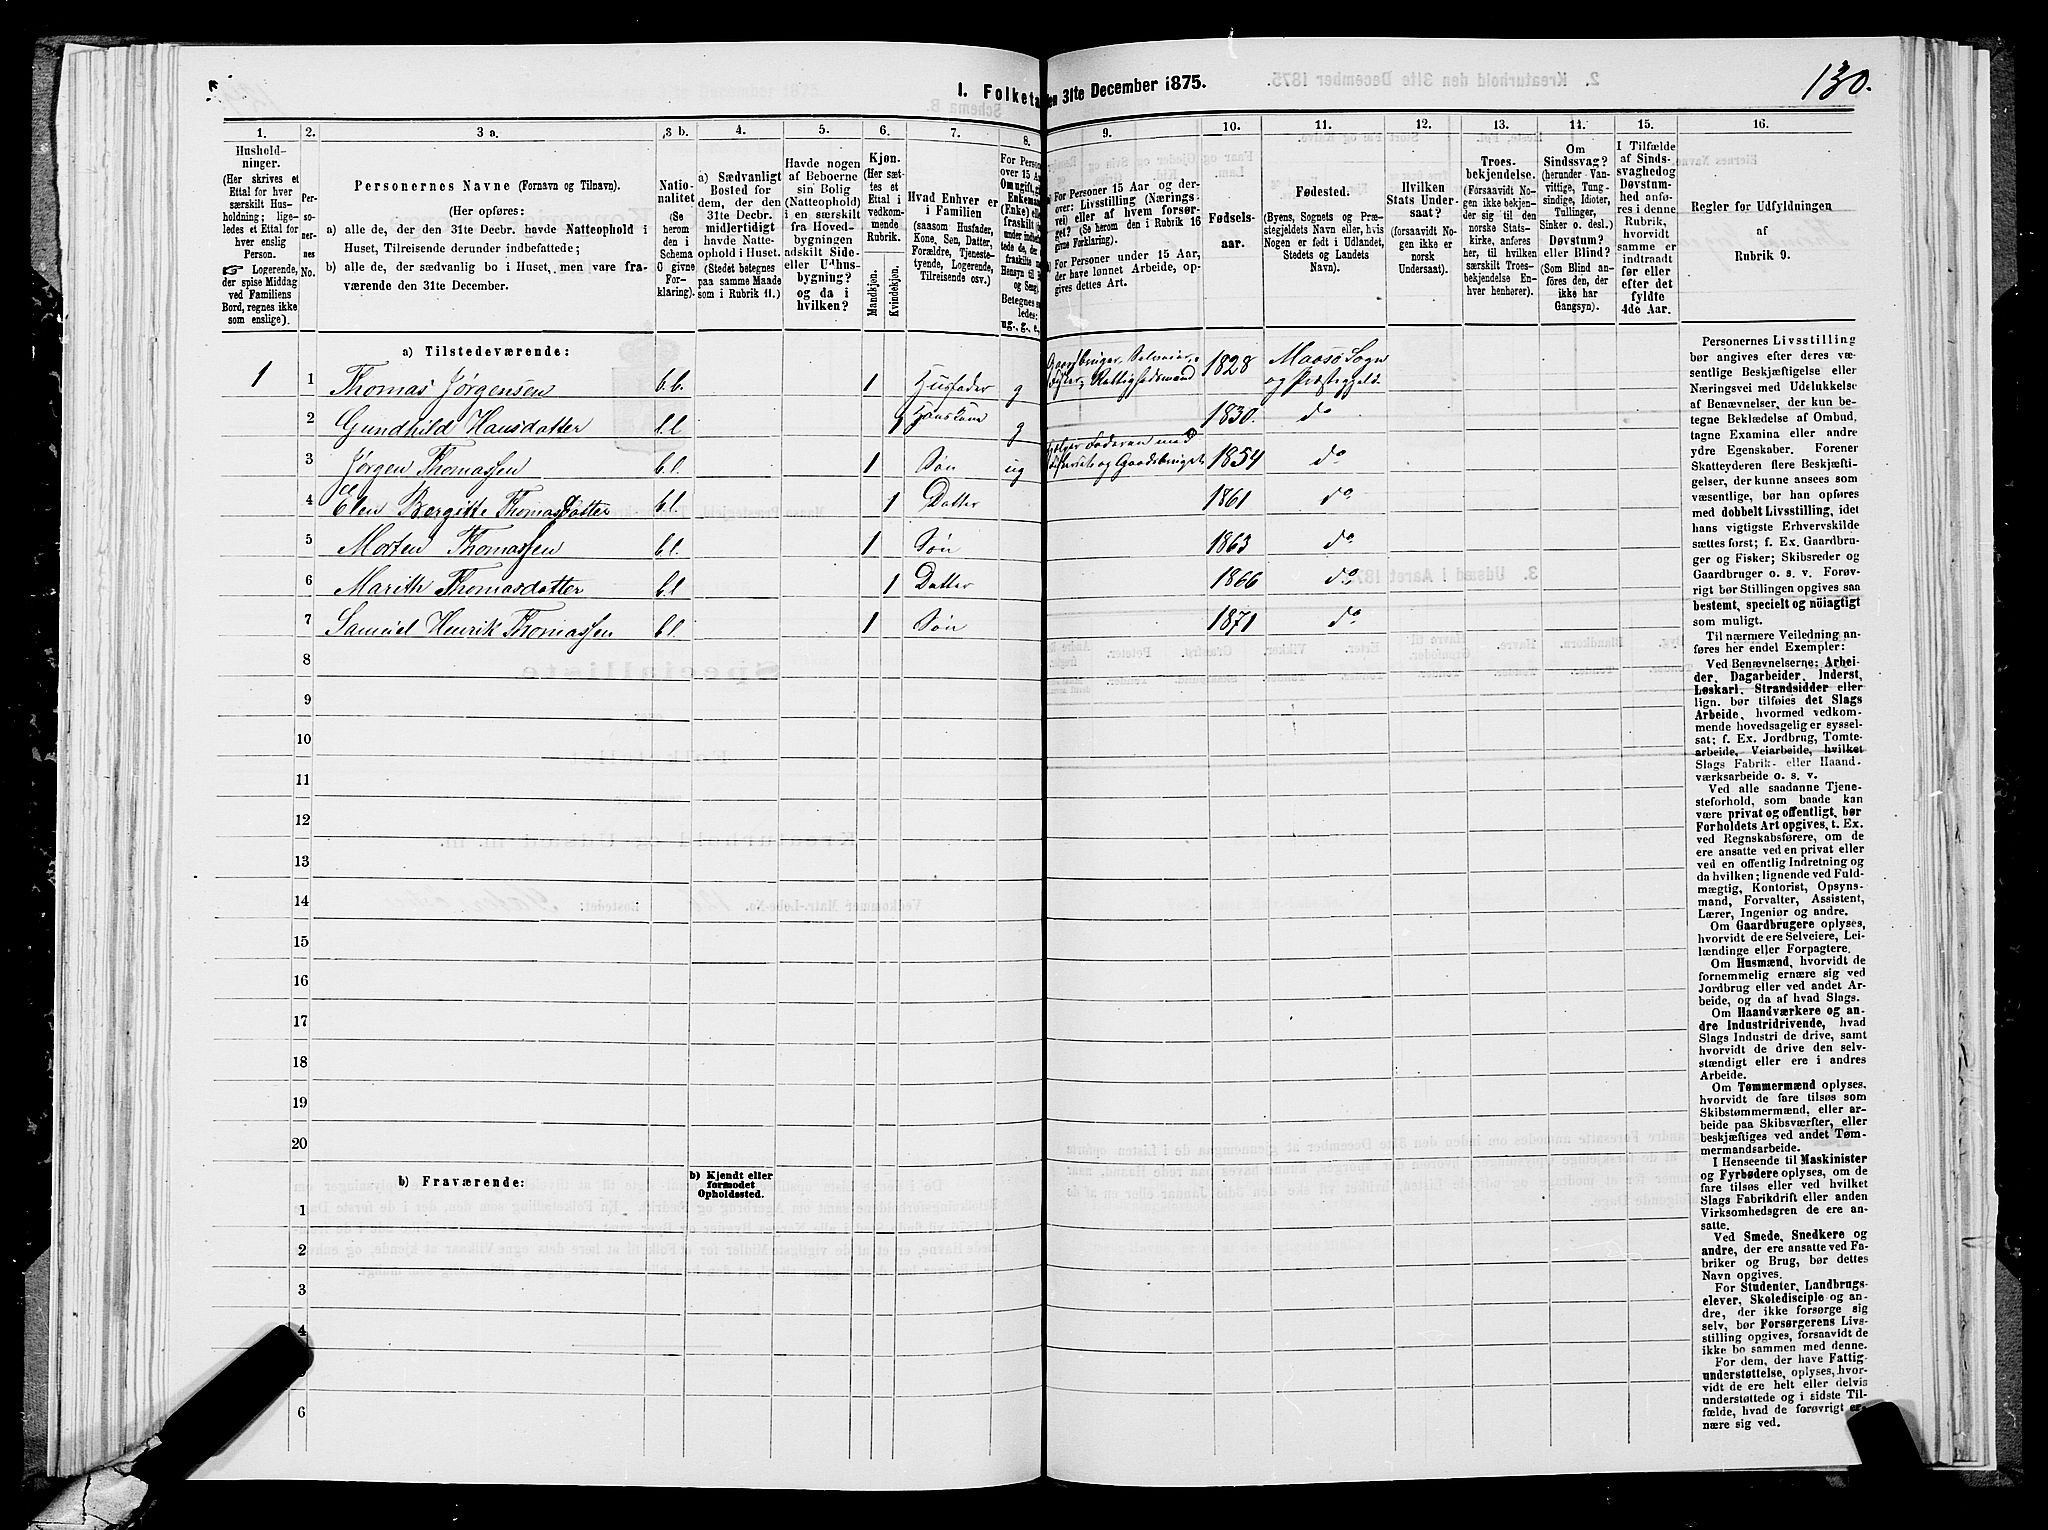 130.
I. Folketa
den 31te December 1875.
1.
2.
3 a.
3 b.
4.
5.
6.
7.
8.
9.
10.
11.
12.
13.
14.
15.
16.
Hushold-
ninger.
(Her skrives et
Ettal for hver
særskilt Hus-
holdning; lige-
ledes et Ettal for
hver enslig
Person.
☞ Logerende,
der spise Middag
ved Familiens
Bord, regnes ikke
som enslige).
Per-
so-
ner-
nes
No.
Personernes Navne (Fornavn og Tilnavn).
(Her opføres:
a) alle de, der den 31te Decbr. havde Natteophold i
Huset, Tilreisende derunder indbefattede;
b) alle de, der sædvanlig bo i Huset, men vare fra-
værende den 31te December.
Natio-
nalitet
(Se
herom
den i
Schema
O givne
For-
klaring).
a) Sædvanligt
Bosted for
dem, der den
31te Decbr.
midlertidigt
havde Natte-
ophold i Huset.
(Stedet betegnes
paa samme Maade
som i Rubrik 11.)
Havde nogen
af Beboerne
sin Bolig
(Natteophold)
i en særskilt
fra Hoved-
bygningen
adskilt Side-
eller Udhus-
bygning?
og da i
hvilken?
Kjøn.
(Her sæt-
tes et
Ettal i
vedkom-
mende
Rubrik.
Mandkjøn.
Kvindekjøn.
Hvad Enhver er
i Familien
(saasom Husfader,
Kone, Søn, Datter,
Forældre, Tjeneste-
tyende, Logerende,
Tilreisende osv.)
For Person
over 15 Aar
Om ugift, gi
Enkema
(Enke) elle
fraskilt
Betegnes s
ledes:
ug., g., e.,
For Personer 15 Aar og der-
over: Livsstilling (Nærings-
vei) eller af hvem forsør-
get? (Se herom den i Rubrik 16
givne Forklaring).
For Personer under 15 Aar,
der have lønnet Arbeide, op-
gives dettes Art.
Fødsels-
aar.
Fødested.
(Byens, Sognets og Præ-
stegjeldets Navn eller, hvis
Nogen er født i Udlandet,
Stedets og Landets
Navn).
Hvilken
Stats Under-
saat?
(forsaavidt No-
gen ikke er
norsk
Undersaat).
Troes-
bekjendelse.
(Forsaavidt No-
gen ikke bekjen-
der sig til den
norske Stats-
kirke, anføres
her, til hvilken
særskilt Troes-
bekjendelse En-
hver henhører).
Om
Sindssvag?
(herunder Van-
vittige, Tung-
sindige, Idioter,
Tullinger,
Sinker o. desl.)
Døvstum?
eller Blind?
(Som Blind an-
føres den, der
ikke har
Gangsyn).
I Tilfælde
af Sinds-
svaghed og
Døvstum-
hed anfø-
res i denne
Rubrik,
hvorvidt
samme er
indtraadt
før eller
efter det
fyldte
4de Aar.
Regler for Udfyldningen
af
Rubrik 9.
a) Tilstedeværende:
1 1 Thomas Jörgensen b.b. 1 Husfader g Gaardbruger, Selveier, Fisker, Rettighedsmand 1828 Maasö Sogn og Præstegjeld
2 Gundhild Hansdatter b.l 1 Hans Kone g 1830. do
3 Jörgen Thomassen b.l. 1 Søn ug 1854 do
4 Elen Bergitte Thomasdatter b.l. 1 Datter 1861 do
5 Morten Thomassen b.l. 1 Søn 1863 do
6 Marith Thomasdatter b.l 1 Datter 1866 do
7 Samuel Henrik Thomassen b.l. 1 Søn 1871 do
8
9
10
11
12
13
14
15
16
17
18
19
20
b) Fraværende:
b) Kjendt eller
formodet
Opholdssted.
1
2
3
4
6
Personernes Livsstilling
bør angives efter deres væ-
sentlige Beskjæftigelse eller
Næringsvei med Udelukkelse
af Benævnelser, der kun be-
tegne Beklædelse af Ombud,
tagne Examina eller andre
ydre Egenskaber. Forener
Skatteyderen flere Beskjæfti-
gelser, der kunne ansees som
væsentlige, bør han opføres
med dobbelt Livsstilling, idet
hans vigtigste Erhvervskilde
sættes først; f. Ex. Gaardbru-
ger og Fisker; Skibsreder og
Gaardbruger o. s. v. Forøv-
rigt bør Stillingen opgives saa
bestemt, specielt og nöiagtigt
som muligt.
Til nærmere Veiledning an-
føres her endel Exempler:
Ved Benævnelserne: Arbei-
der, Dagarbeider, Inderst,
Løskarl, Strandsidder eller
lign. bør tilføies det Slags
Arbeide, hvormed vedkom-
mende hovedsagelig er syssel-
sat; f. Ex. Jordbrug, Tomte-
arbeide, Veiarbeide, hvilket
Slags Fabrik- eller Haand-
værksarbeide o. s. v.
Ved alle saadanne Tjene-
steforhold, som baade kan
være privat og offentligt, bør
Forholdets Art opgives, t. Ex.
ved Regnskabsførere, om de
ere ansatte ved en privat eller
ved en offentlig Indretning og
da hvilken; lignende ved Fuld-
mægtig, Kontorist, Opsyns-
mand, Forvalter, Assistent,
Lærer, Ingeniør og andre.
Om Gaardbrugere oplyses,
hvorvidt de ere Selveiere, Lei-
lændinge eller Forpagtere.
Om Husmænd, hvorvidt de
fornemmelig ernære sig ved
Jordbrug eller ved andet Ar-
beide, og da af hvad Slags.
Om Haandværkere og an-
dre Industridrivende, hvad
Slags Industri de drive, samt
hvorvidt de drive den selv-
stændigt eller ere i andres
Arbeide.
Om Tømmermænd oplyses,
hvorvidt de fare tilsøs som
Skibstømmermænd, eller ar-
beide paa Skibsværfter, eller
beskjæftiges ved andet Tøm-
mermandsarbeide.
I Henseende til Maskinister
og Fyrbødere oplyses, om de
fare tilsøs eller ved hvilket
Slags Fabrikdrift eller anden
Virksomhedsgren de ere an-
satte.
Ved Smede, Snedkere og
andre, der ere ansatte ved Fa-
briker og Brug, bør dettes
Navn opgives.
For Studenter, Landbrugs-
elever, Skoledisciple og an-
dre, der ikke forsørge sig
selv, bør Forsørgerens Livs-
stilling opgives, forsaavidt de
ikke bo sammen med denne.
For dem, der have Fattig-
understøttelse, oplyses, hvor-
vidt de ere helt eller delvis
understøttede og i sidste Til-
fælde, hvad de forøvrigt er-
nære sig ved.